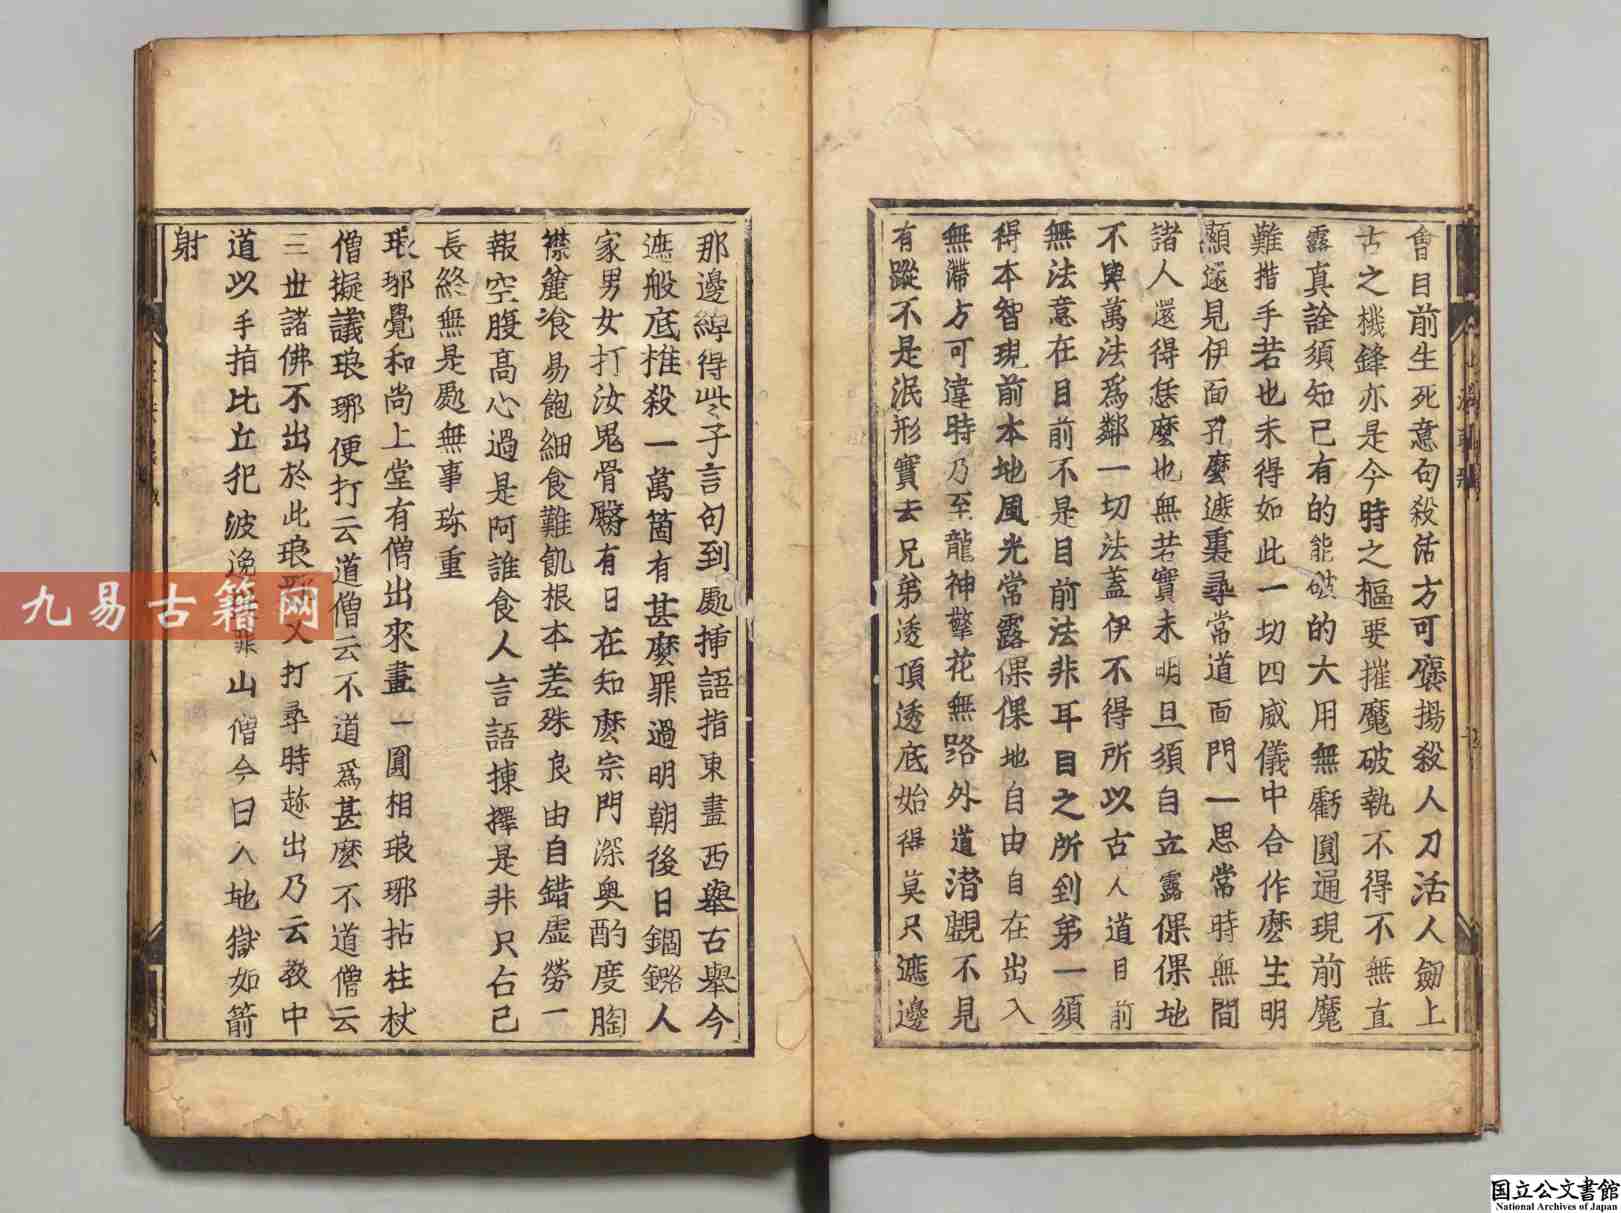 會目前生死意句殺活方可褒揚殺人刀活人劒上
古之機鋒亦是今時之樞要摧魔破執不得不無直
露真詮須知已有的能破的大用無虧圓通現前魔
難措手若也未得如此一切四威儀中合作麽生明
顯還見伊面孔麽遮裏尋常道面門一思常時無間
諸人還得恁麽也無若實未明且須自立露倮倮地
不與萬法爲鄰一切法蓋伊不得所以古人道目前
無法意在目前不是目前法非耳目之所到第一須
得本智現前本地風光常露倮倮地自由自在出入
無滯方可違時乃至龍神擎花無路外道潛覷不見
有蹤不是泯形實去兄弟透頂透底始得莫只遮邊
那邊綽得些子言句到處揷語指東畫西舉古舉今
遮般底椎殺一萬箇有甚麽罪過明朝後日錮鏴人
家男女打汝鬼骨臀有日在知麽宗門深奥酌度胸
襟麄飡易飽細食難飢根本差殊良由自錯虛勞一
報空腹高心過是阿誰食人言語揀擇是非只名己
長終無是處無事珎重
瑯琊覺和尚上堂有僧出來畫一圓相瑯琊拈柱杖
僧擬議瑯琊便打云道道僧云不道爲甚麽不道僧云
三世諸佛不出於此瑯琊又打尋時趂出乃云教中
道以手拍比丘犯波逸罪山僧今日入地獄如箭
射
九易古籍网
国立公文書館
National Archives of Japan